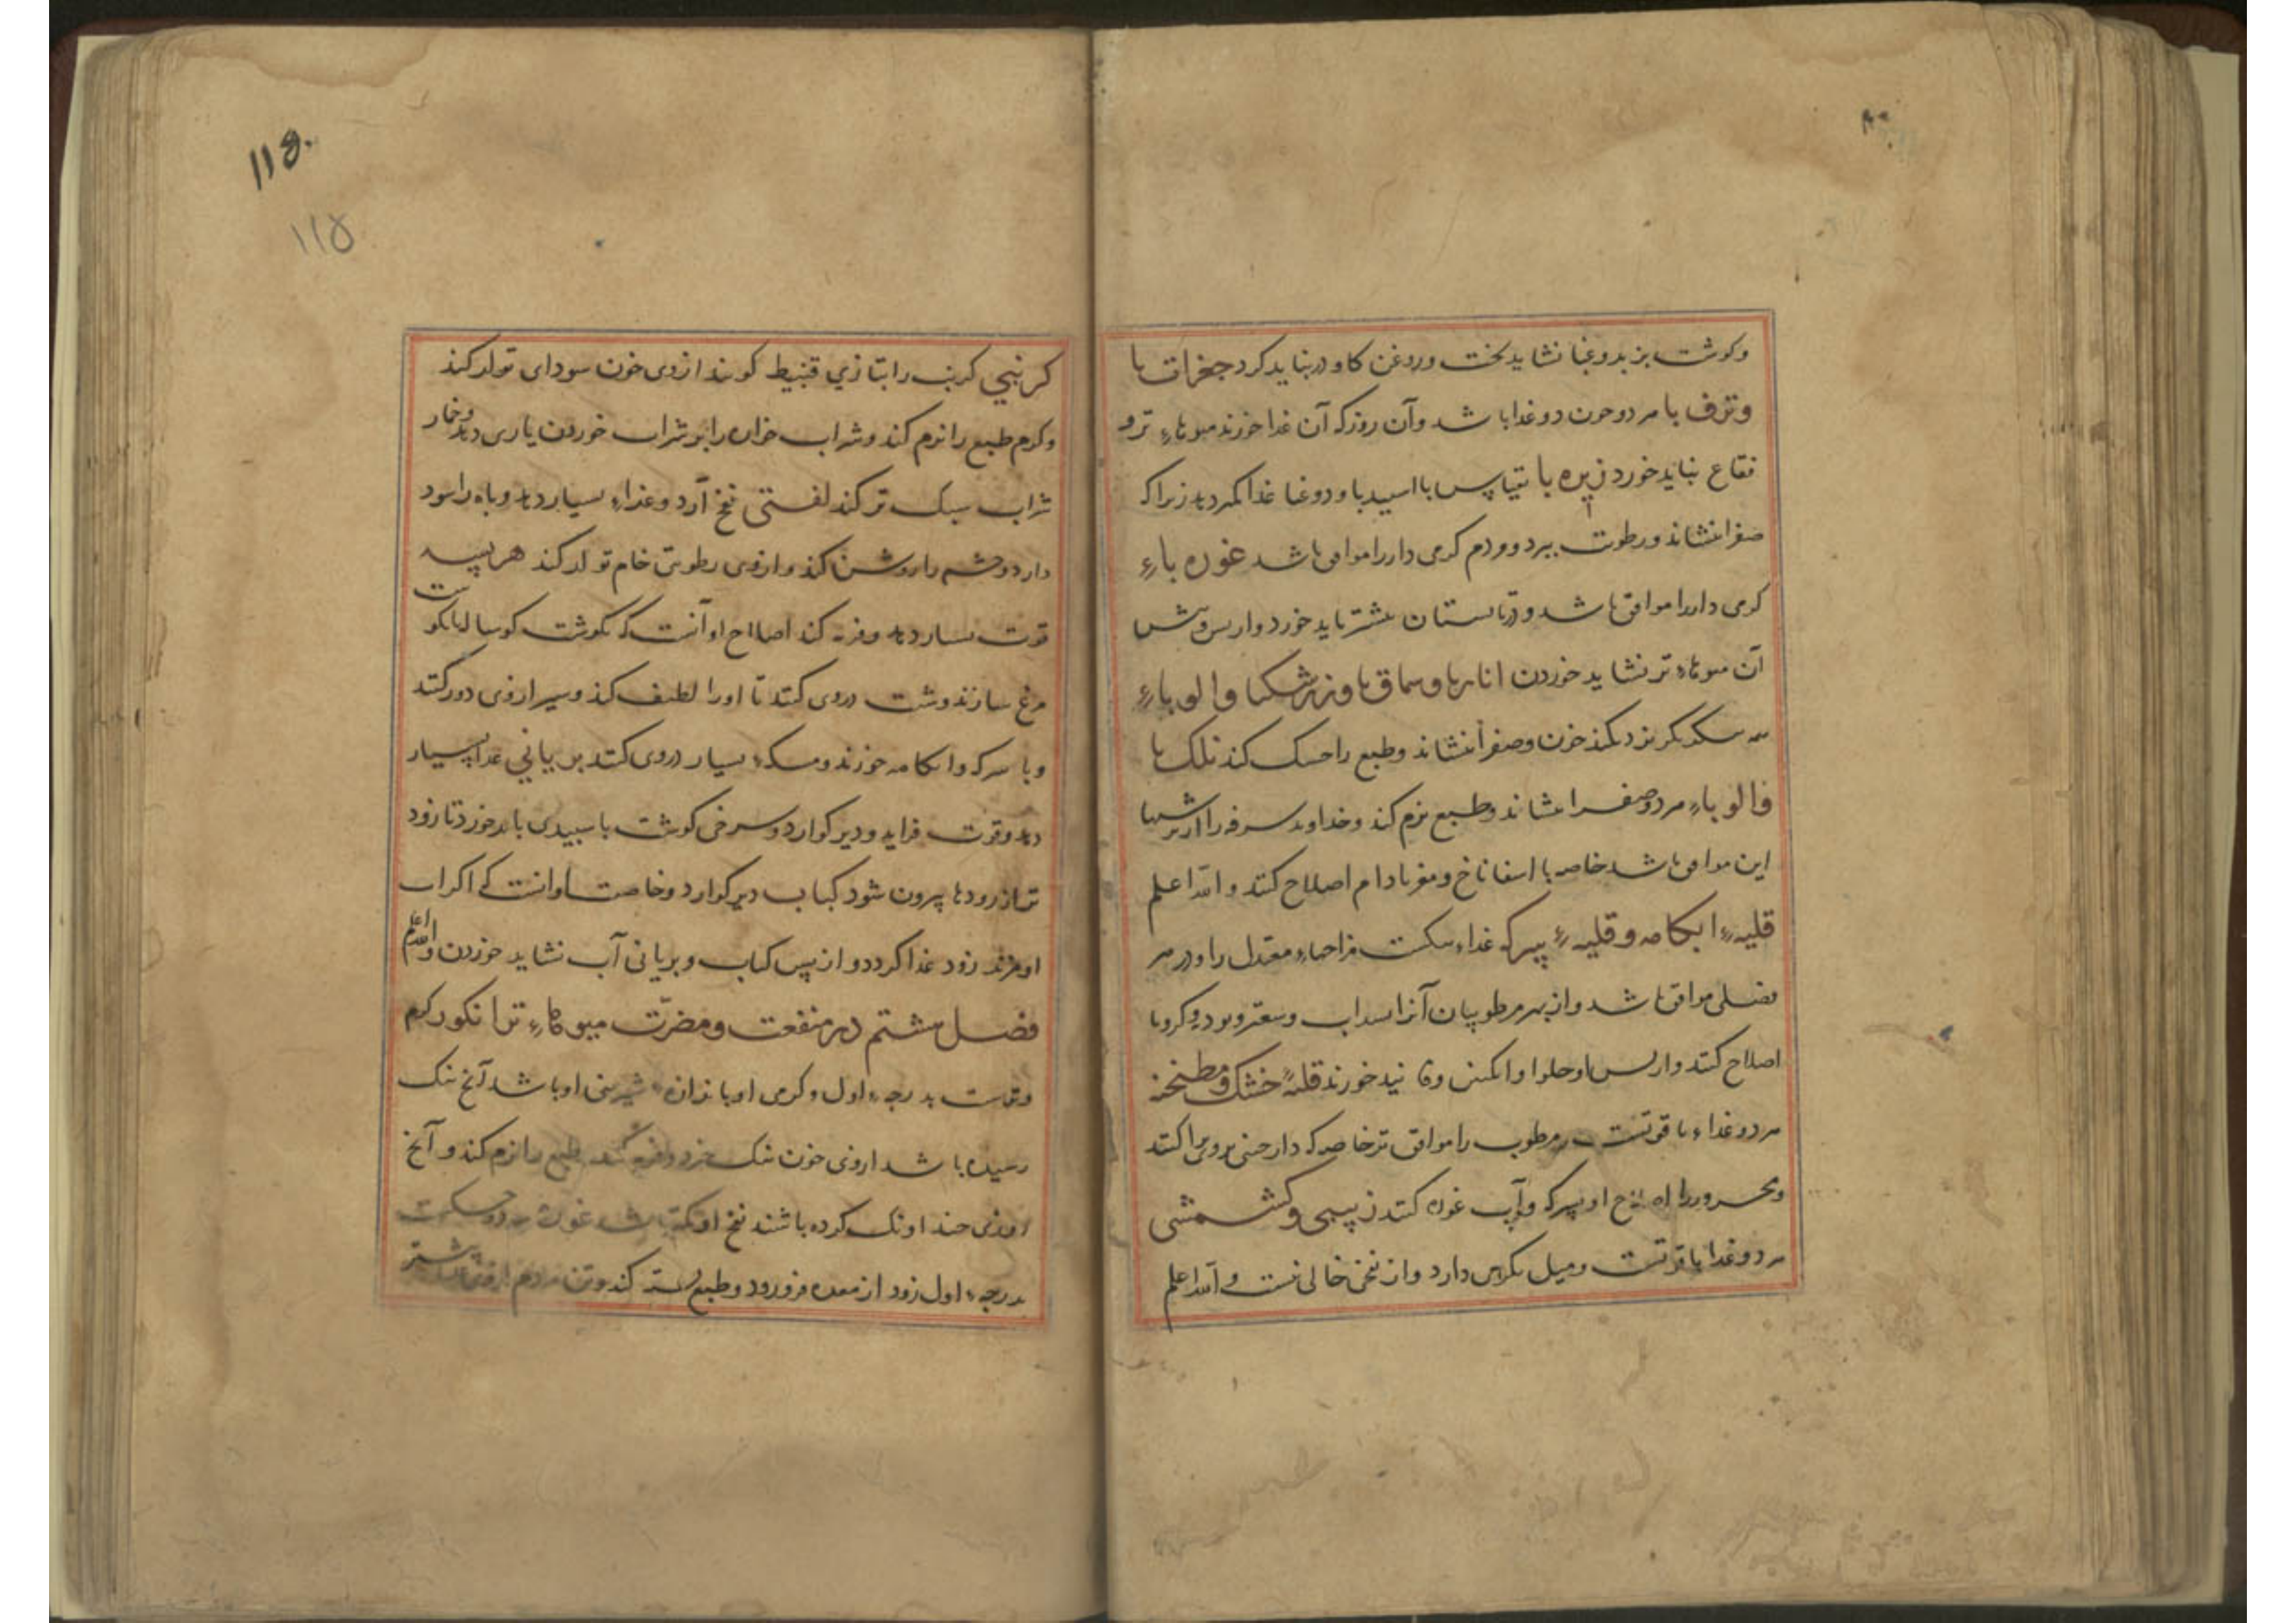 وکوشت بز بدوغبا نشاید پخت وروغن کاو درنباید کرد جغرات با
وترف با مردو حون دوغبا باشد وآن روز که آن غذا خورند میوهاء ترو
فقاع نباید خورد زیره با تتیا پس با اسپیدبا ودوغبا غذا کمتر دهد زیرا که
صفرا نشاند ورطوبت ببرد ومردم کرمی دار را موافق باشد غوره باء
کرمی دار را موافق باشد ودر تابستان بیشتر باید خورد واز پس وپیش
آن میوهاء تر نشاید خوردن انارباو سماق با وزرشکبا والوباء
کند خون وصفرا نشاند وطبع را خشک کند نلک با
والوباء مردو صفرا نشاند وطبع نرم کند وخداوند سرفه را از ترشیها
این موافق باشد خاصه با اسفاناخ ومغز بادام اصلاح کنند والله اعلم
قلیهء ابکامه وقلیهء بسرکه غذاء سکست مزاجهاء معتدل را ودر هر
فصلی موافق باشد واز بهر مرطوبیان آنرا بسداب وسعتر وپودنه وکرویا
اصلاح کنند واز پس او حلوا وانکبین وفانید خورند قلیهٔ خشک ومطنجنه
مردو غذاء با قوتست مرطوب را موافق تر خاصه که دارچینی بروپراکنند
ومحرور را اصلاح او بسرکه وآب غوره کنند زبیبی وکشمشی
مردو غذا با قوتست ومیل بکرمی دارد واز نفخی خالی نیست والله اعلم
۱۱۵
۱۱۵
کرنبی کرنب را بتازی قنبیط کویند ازوی خون سودای تولد کند
وکرم طبع را نرم کند وشراب خواره را بر شراب خوردن یاری دهد وخمار
شراب سبک تر کند لفتی نفخ آرد وغذاء بسیار دهد وباه را سود
دارد وچشم را روشن کند وازوی رطوبتی خام تولد کند هریسه
قوت بسیار دهد وفربه کند اصلاح او آنست که بکوشت کوساله یا بکوشت
مرغ سازند وشبت دروی کنند تا اورا لطیف کند وسیر ازوی دور کنند
وبا سرکه وابکامه خورند ومسکهء بسیار دروی کنند بریانی غذا بسیار
دهد وقوت فزاید ودیر کوارد وسرخی کوشت با سپیدی باید خورد تا زود
تر از رودها بیرون شود کباب دیر کوارد وخاصیت او انست که اکر اب
او مزند زود غذا کردد واز پس کباب وبریانی آب نشاید خوردن والله اعلم
فصل هشتم در منفعت ومضرّت میوهاء تر انکور کرم
وترست بدرجهء اول وکرمی او باندازهء شیرینی او باشد آنچ نیک
رسیده باشد ازوی خون نیک خیزد وفربه کند طبع را نرم کند وآنچ
روزی چند اونک کرده باشند نفخ او کمتر باشد غوره سرد وخشکست
بدرجهء اول زود از معده فرو رود وطبع بسته کند وتن مردم ازوی بیشتر